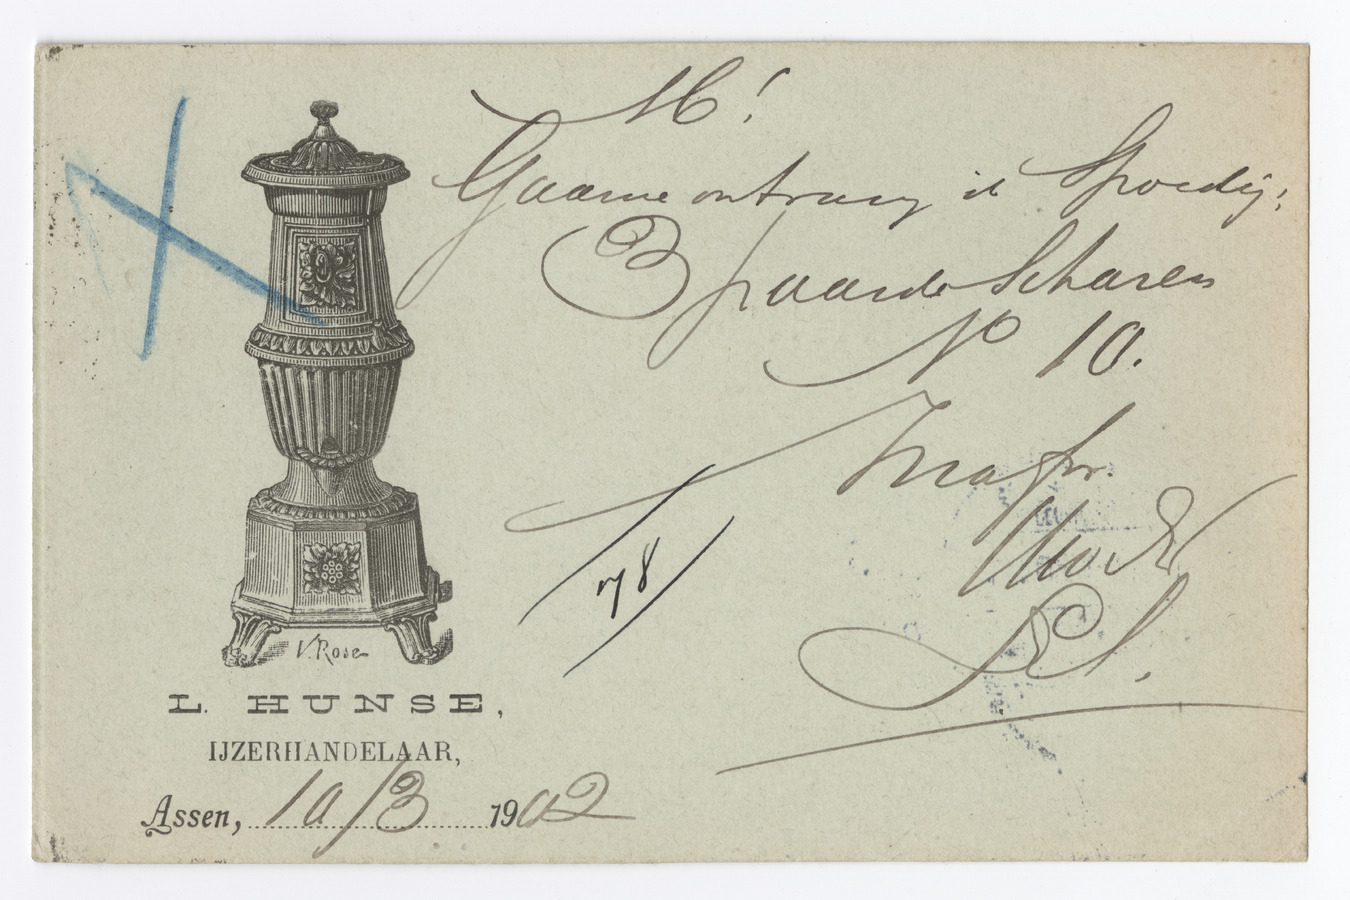 M!
Gaarne ontvang ik Spoedig:
3 paarde Scharen
No 10.
78
V. Rose
L. HUNSE,
IJZERHANDELAAR,
Assen, 10/3 1902